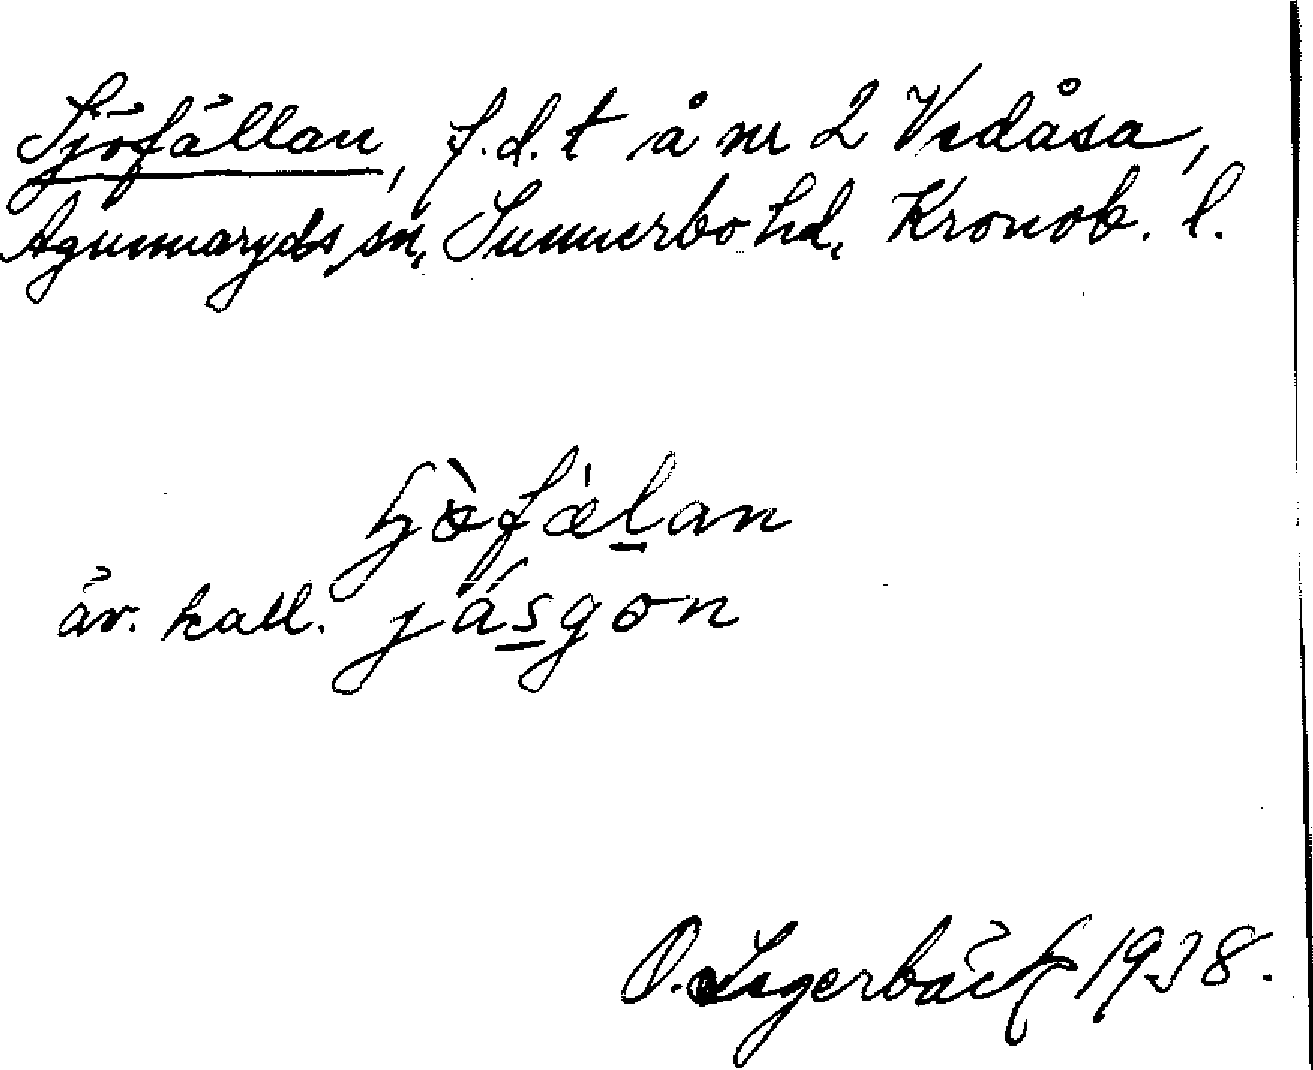 Sjöfällan, f.d. t å nr 2 Vedåsa,
Agunnaryds sn, Sunnerbo hd, Kronob. l.
äv. kall.
O. Lagerbäck 1938.